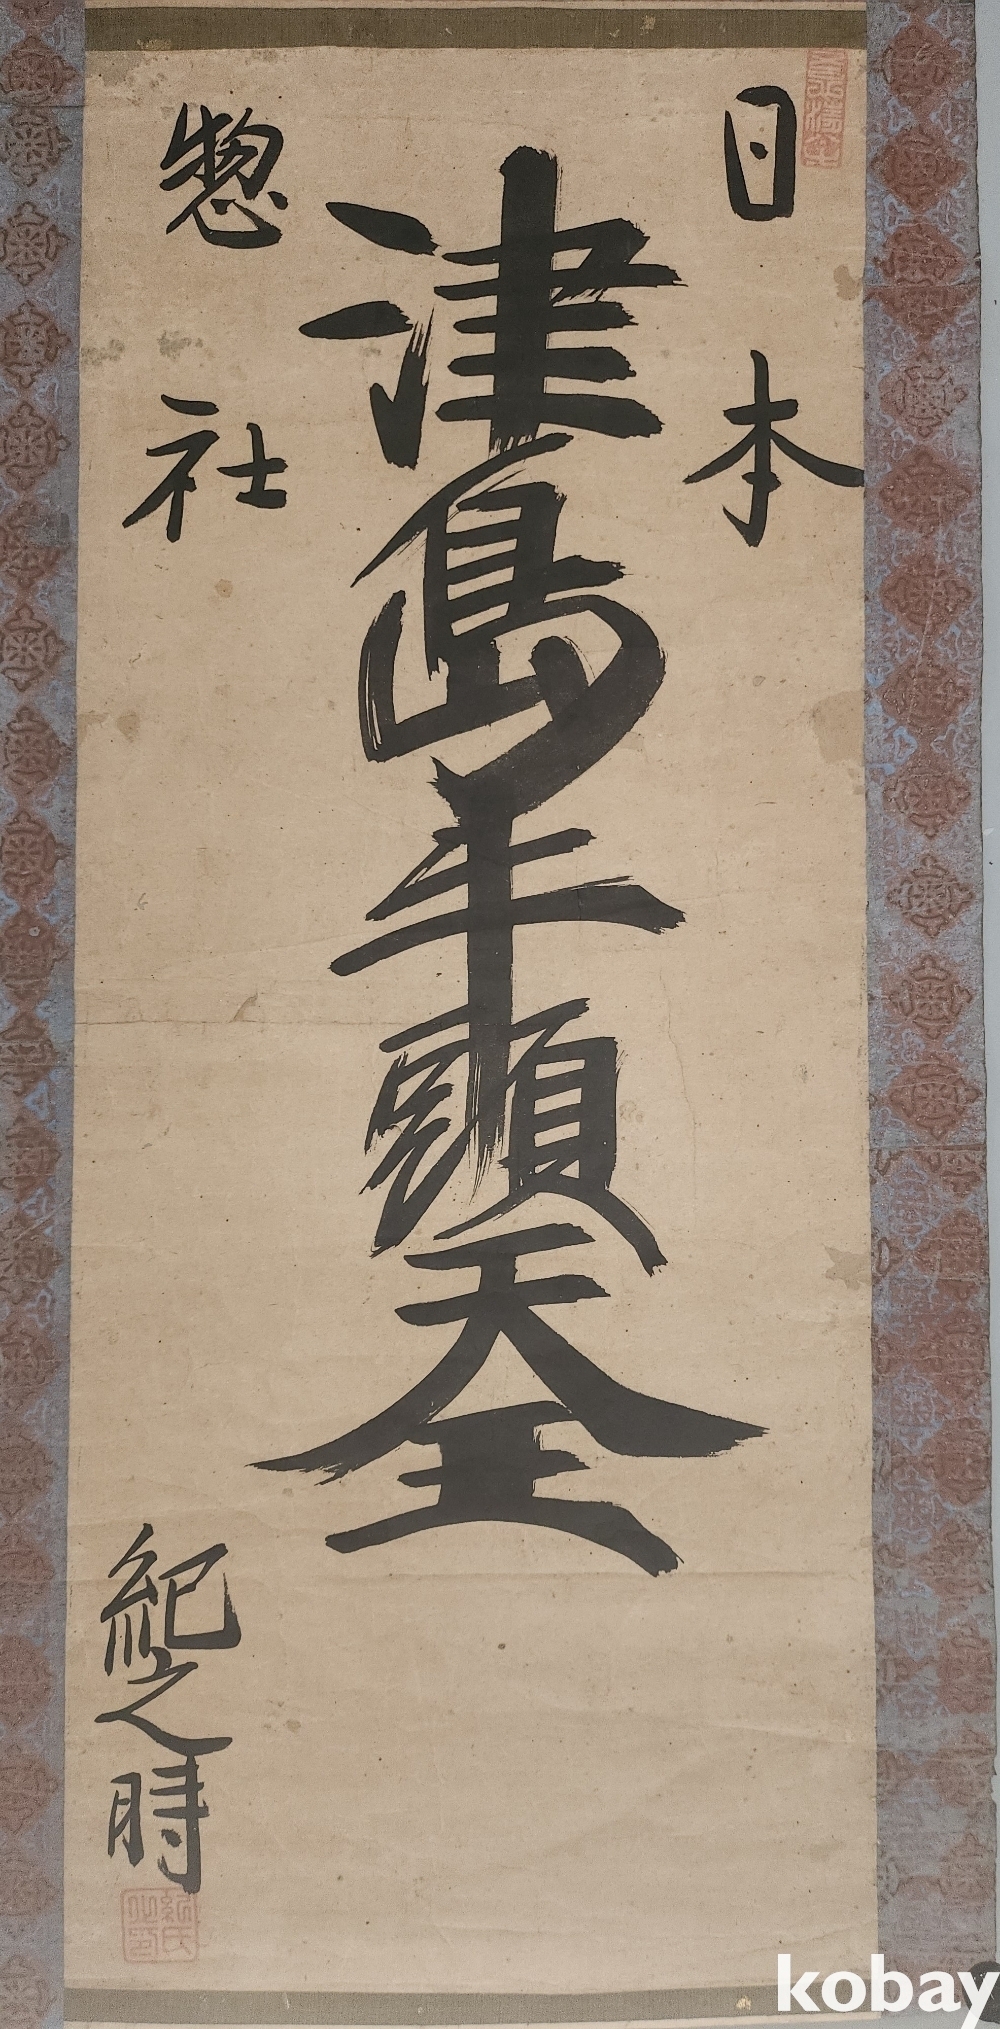 日本
津島牛頭天王
惣社
紀之時
kobay